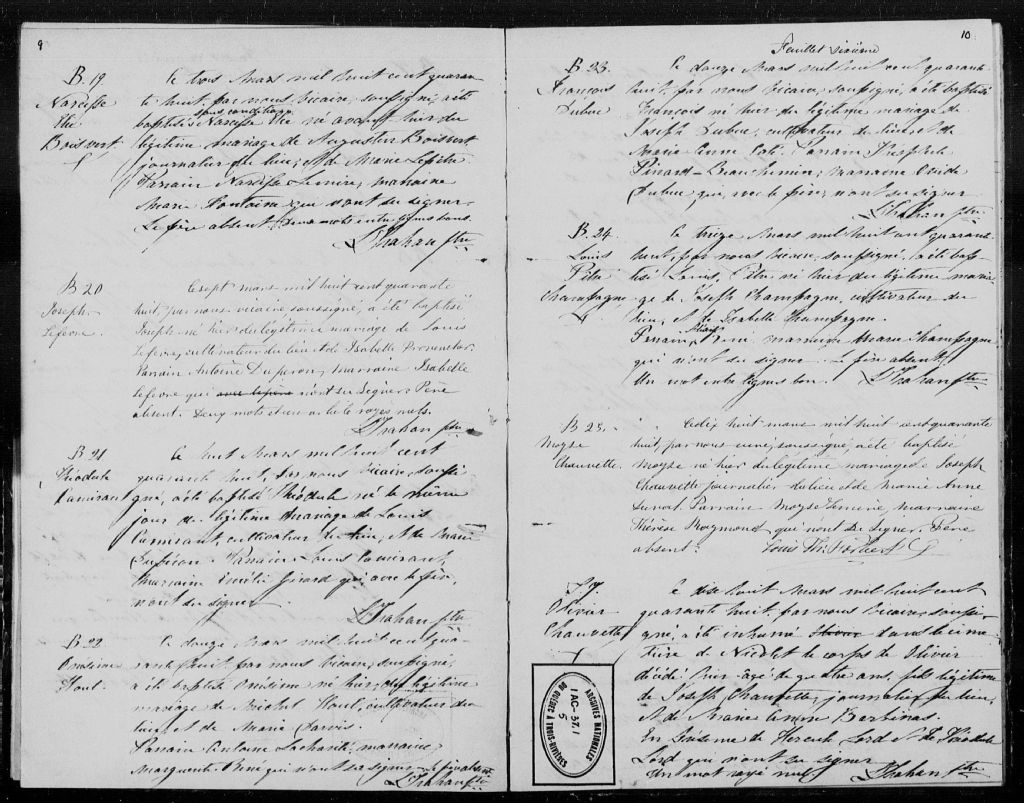 9
B 19
Narcisse
Elie
Boisvert
Le trois Mars mil huit cent quaran
te huit, par nous Vicaire, soussigné, a été
sous condition
baptisé Narcisse Elie né avant hier du
légitime mariage de Augustin Boisvert
journalier du lieu, & de Marie
Parrain Narcisse Lemire, marraine
Marie Fontaine qui n'ont su signer.
Le père absent. Deux mots entre lignes bons.
L Trahan Ptre
B 20
Joseph
Lefevre
Le sept mars mil huit cent quarante
huit par nous vicaire soussigné, a été baptisé
Joseph né hier du légitime mariage de Louis
Lefevre, cultivateur du lieu et de Isabelle Provencher.
Parrain Antoine Duperon, marraine Isabelle
Lefevre qui n'ont su signer. Père
absent. Deux mots rayés nuls.
L Trahan ptre
B 21
Théodule
Camirant
Le huit Mars mil huit cent
quarante huit, par nous Vicaire, soussi
gné, a été baptisé Théodule né le même
jour du légitime mariage de Louis
Camirant, cultivateur du lieu, & de Marie
Parrain Louis Camirant,
Marraine Emélie Girard qui, avec le père,
n'ont su signer
L Trahan ptre
B 22
Onésime
Houl
Le douze Mars mil huit cent qua
rante huit, par nous Vicaire, soussigné,
a été baptisé Onésime né hier, du légitime
mariage de Michel Houl, cultivateur du
lieu, et de Marie
Parrain Antoine Lachanté, marraine
Marguerite qui n'ont su signer. Le père absent
L Trahan Ptre
10
Feuillet sixième
B 23.
François
Dubuc
Le douze Mars mil huit cent quarante
huit, par nous Vicaire, soussigné, a été baptisé
François né hier du légitime mariage de
Joseph Dubuc, cultivateur du lieu et de
Marie Anne Coté. Parrain
Pinard-Beauchemin, marraine
Dubuc qui, avec le père, n'ont su signer
L Trahan ptre
B. 24.
Louis
Champagne
Le treize Mars mil huit cent quaran-
huit, par nous Vicaire, soussigné, a été bap-
tisé Louis né hier du légitime maria-
ge de Joseph Champagne, cultivateur du
lieu, & de Isabelle Champagne.
Parrain marraine Marie Champagne
qui n'ont su signer. Le père absent.
Un mot entre lignes bon. L Trahan Ptre
B 25.
Moyse
Chauvette.
Le dix huit mars mil huit cent quarante
huit, par nous curé, soussigné, a été baptisé
Moyse né hier du légitime mariage de Joseph
Chauvette journalier du lieu et de Marie Anne
Parrain Moyse Lemire, marraine
Thérèse Raymond qui n'ont su signer. Père
absent.
S 7.
Olivier
Chauvette
Le dix huit Mars mil huit cent
quarante huit, par nous Vicaire, soussi
gné, a été inhumé dans le cime
tière de Nicolet le corps de Olivier
décédé hier âgé de quatre ans, fils légitime
de Joseph Chauvette, journalier du lieu,
& de Marie Anne
En présence de Hercule Lord & de Théodule
Lord qui n'ont su signer
Un mot rayé nul L Trahan Ptre
ARCHIVES NATIONALES
DU QUÉBEC À TROIS-RIVIÈRES